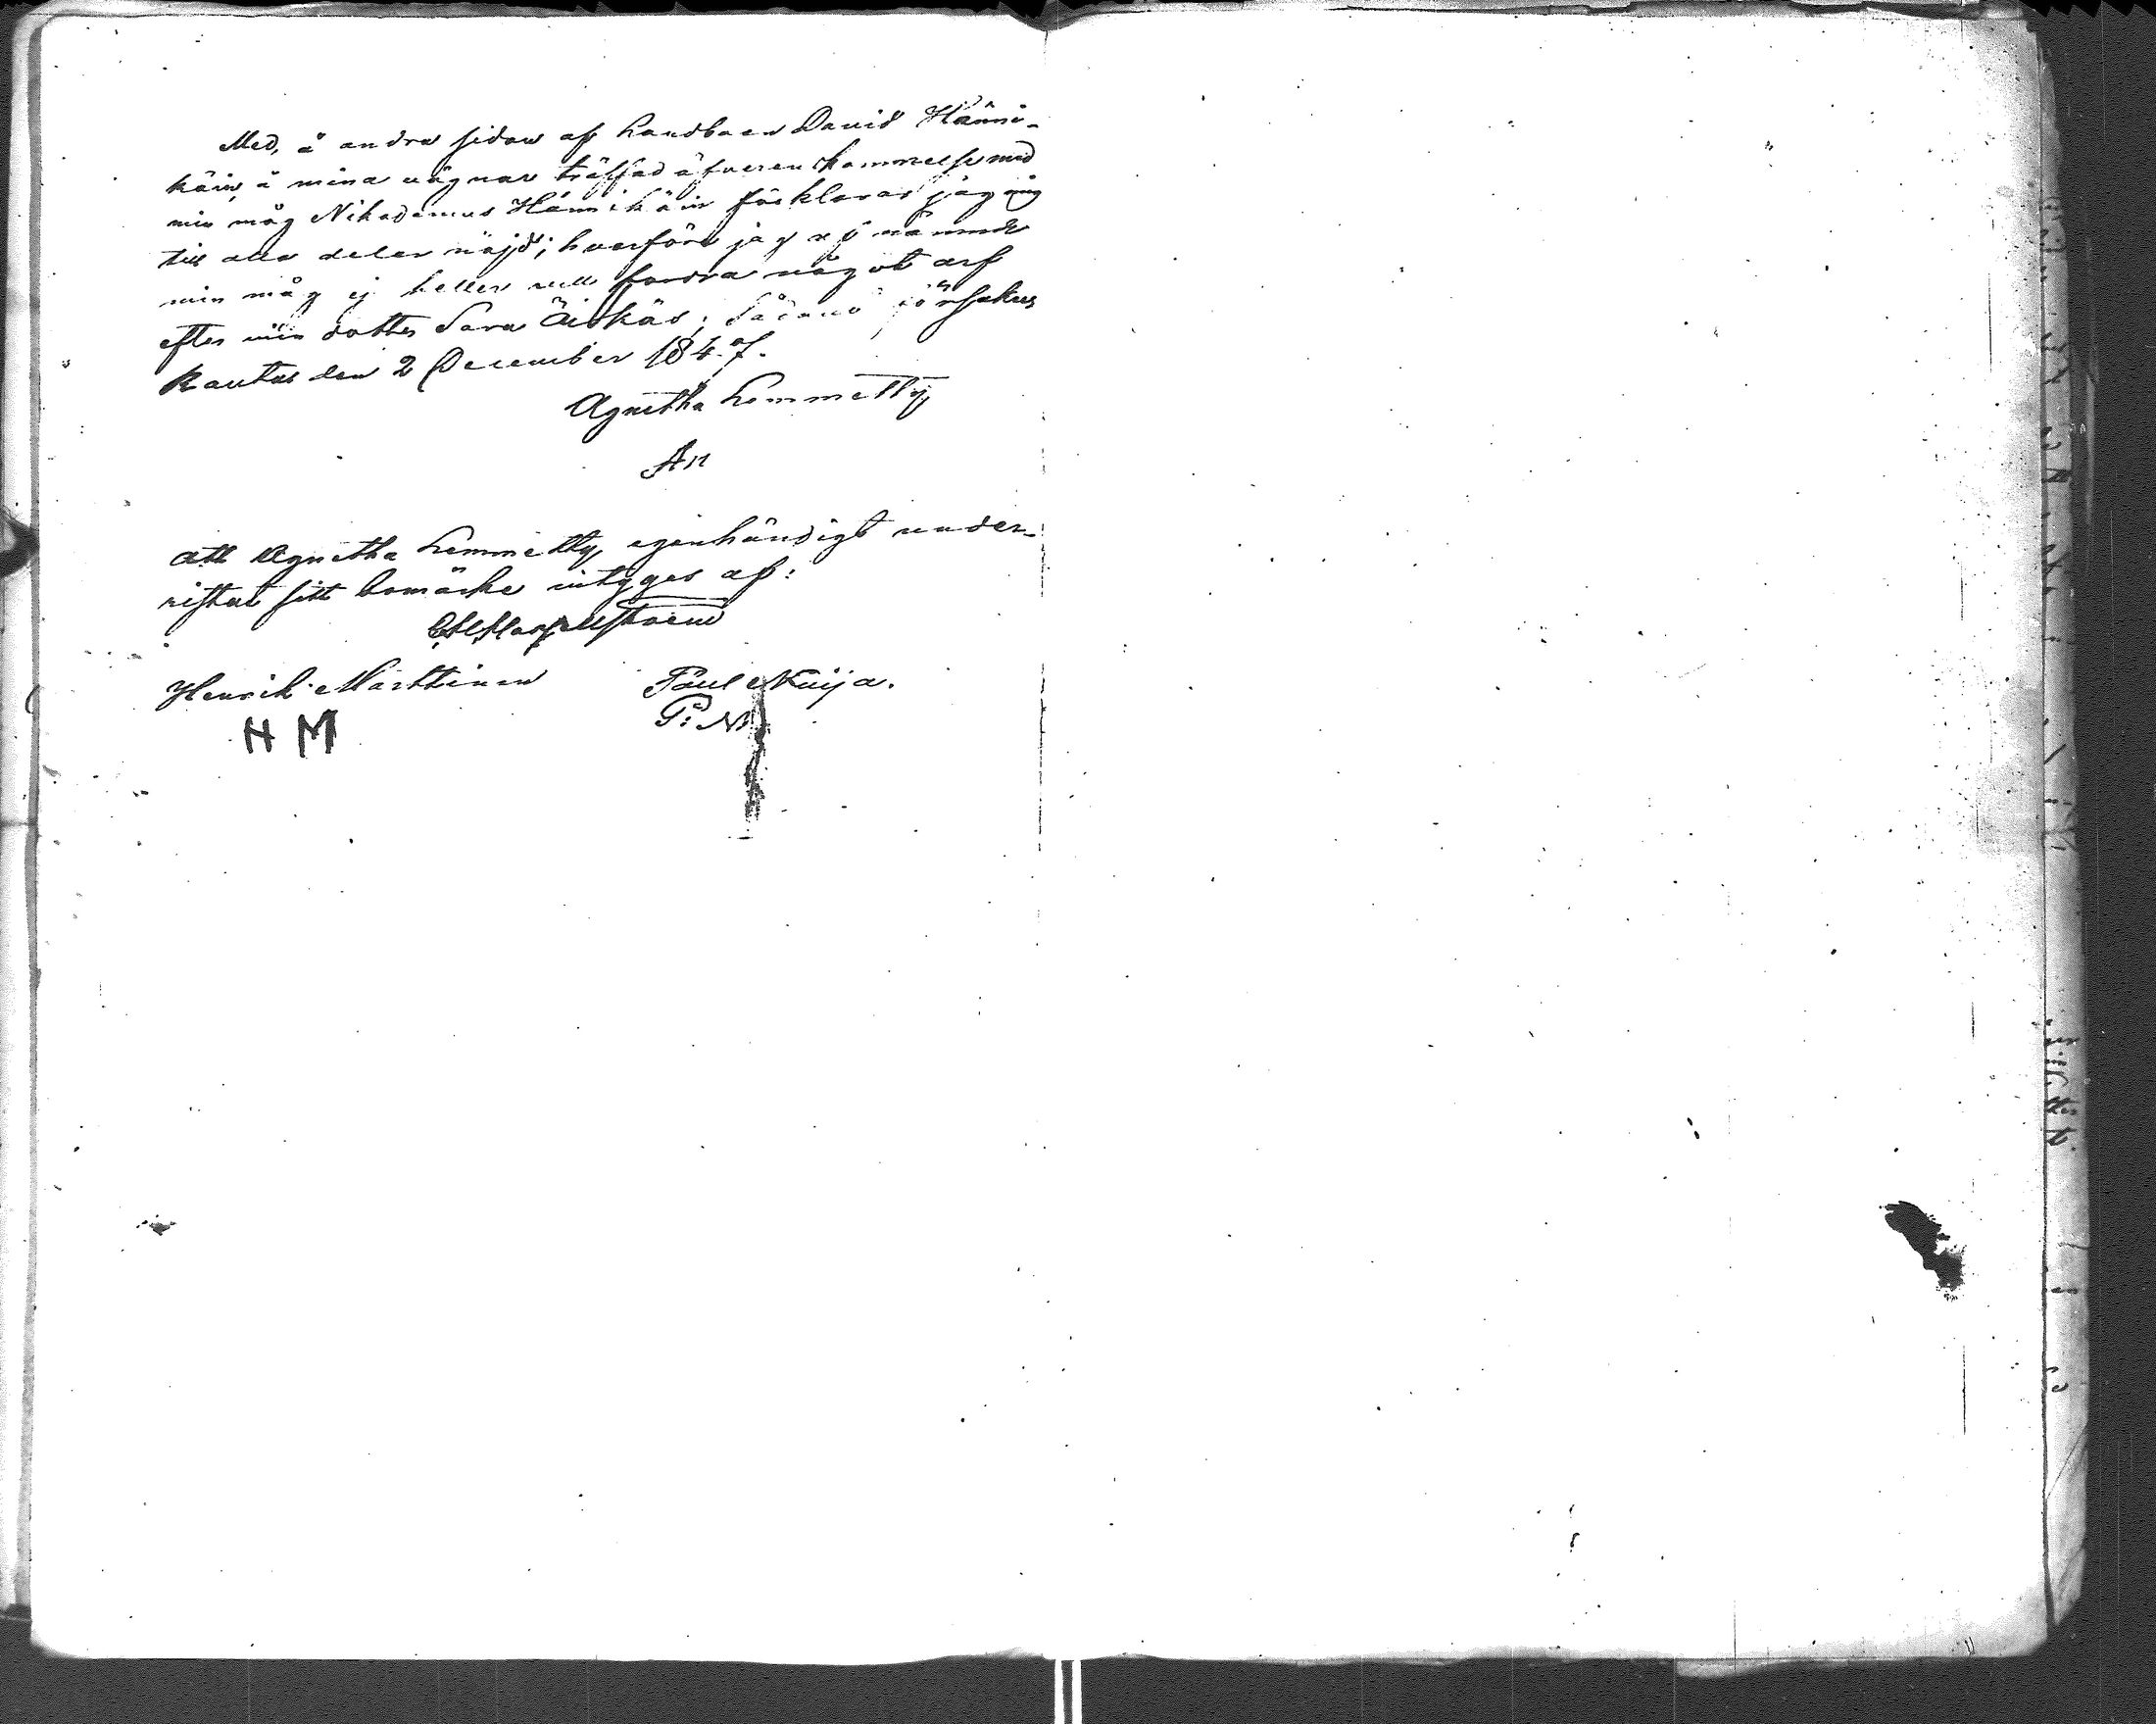 Med, å andra sidan af Landboen David Hänni-
käin, å mina vägnar träffad äfverenskommelse med
min måg Nikodemus Hännikäin förklarar jag mig
till alla delar nöjd; hvarföre jag af nämnde
min måg ej heller vill fordra något arf
efter min dotter Sara Äikäs; Sådant försäkras
Rautus den 2 December 1847.
Agnetha Lemmetty
An
Att Agnetha Lemmetty egenhändigt under-
ristat sitt bomärke intygas af:
Henrik Marttinen Paul Naija.
H M P: N